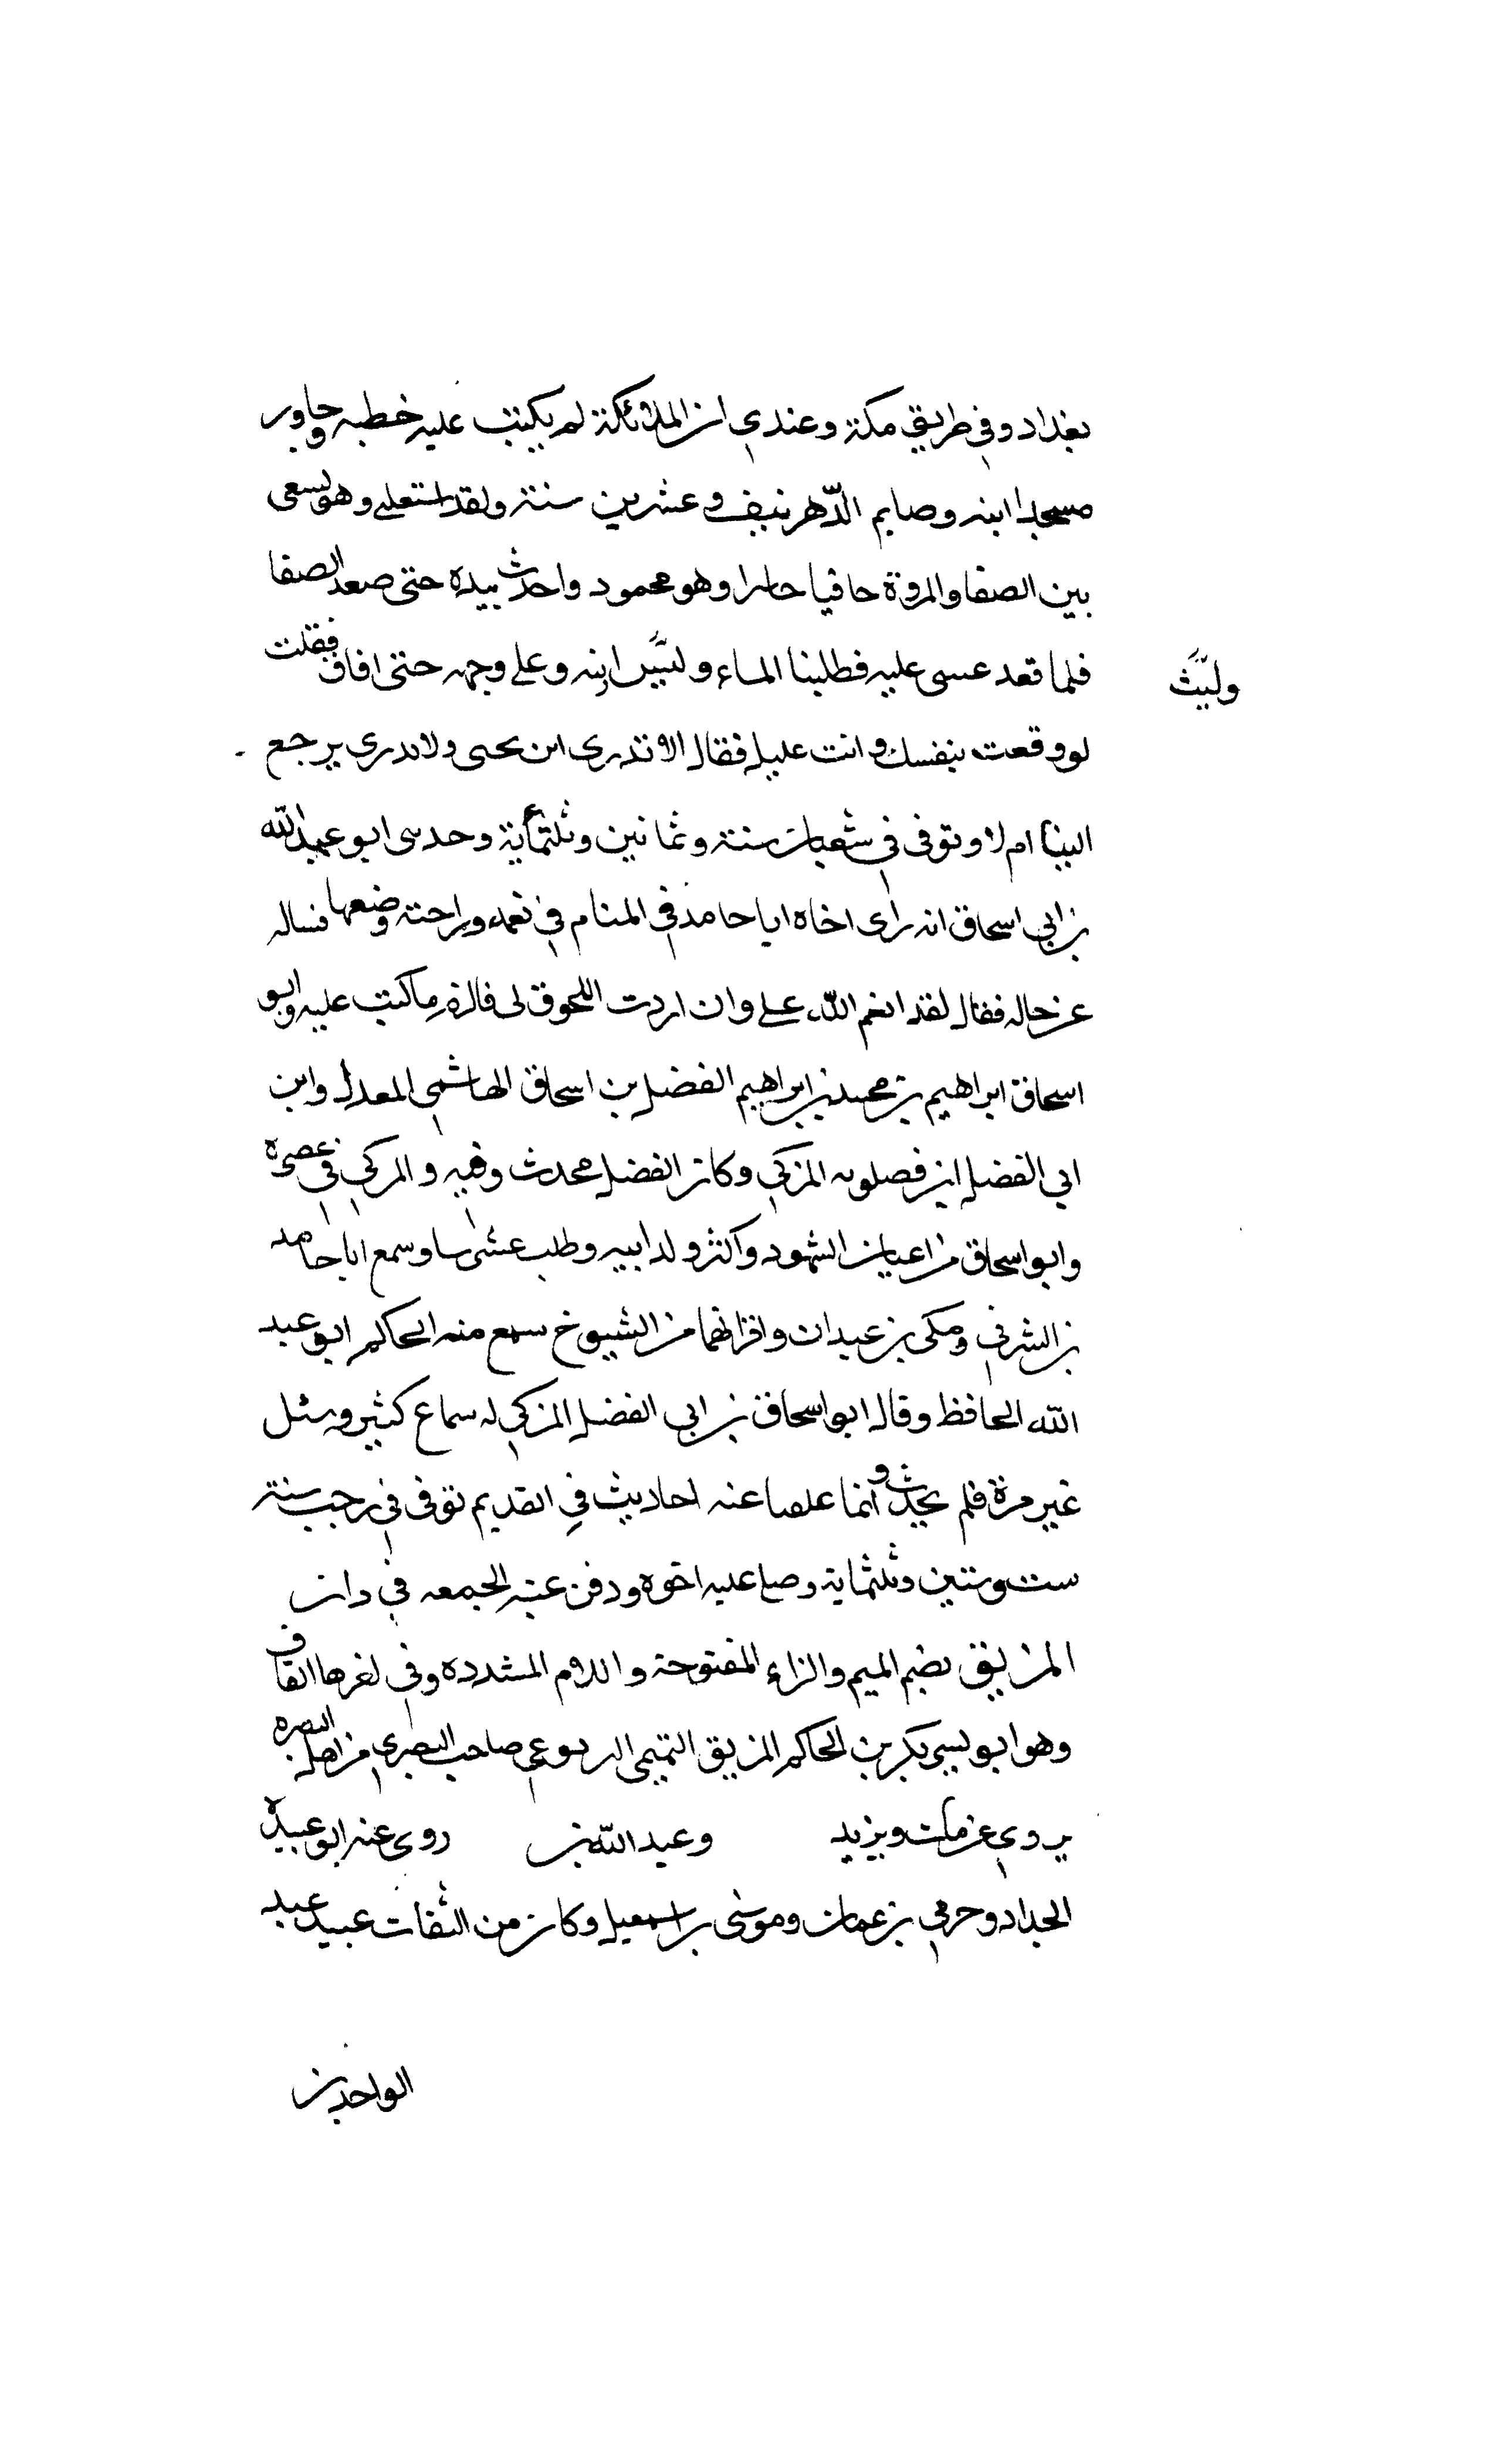 بغداد وفي طريق مكة وعندي ان الملائكة لم يكتب عليه خطيه وجاور
مسجد ابنه وصايم الدّهر نيف وعشرين سنة ولقد وهو يسعى
بين الصفا والمروة حافيا حاسرا وهو محمود بيده حتى صعد الصفا
فلما قعد عسى عليه فطلبنا الماء ابنه وعلى وجهه حتى افاق فقلت
وليَّث
لو وقعت بنفسك وانت عليل فقال الا تدري ابن يحيى ولا يدري يرجع
الينا ام لا وتوفى في شعبان سنة وثمانين وثلثمائة وحدسى ابو عبد الله
بن ابي اسحاق انه راى اخاه ابا حامد في المنام في نعمه وراحته وضعها فساله
عن حاله فقال لقد انعم الله علي وان اردت اللحوق لى فالزم ما كتب عليه وابو
اسحاق ابراهيم بن محمد بن ابراهيم الفضل بن اسحاق الهاشمي المعدل وابن
ابي الفضل ابن فصلويه المزكي وكان الفضل محدث وقيه والمركي في عصره
وابو اسحاق من اعيان الشهود واكثر ولد ابيه وطلب وسمع ابا حامد
بن الشرفي ومكى بن عبدان واقرانهما من الشيوخ سمع منه الحاكم ابو عبد
الله الحافظ وقال ابو اسحاق بن ابي الفضل المزكي له سماع كثير وسئل
غير مرة فلم يحدث وانما عنه احاديث في القديم توفى في رجب سنة
ست وستين وثلثماية وصلى عليه اخوه ودفن الجمعه في دار
المزيق بضم الميم والزاء المفتوحة واللام المشدده وفي القاف
وهو ابو بكر بن الحاكم المزيق التميمي اليربوعي صاحب البصري من اهل البصره
يروي عن ويزيد وعبد الله بن روى عنه ابو عبيدة
الحداد وحرمي بن عمان وموسى بن اسمعيل وكان من الثقات عبيد عبد
الواحد بن